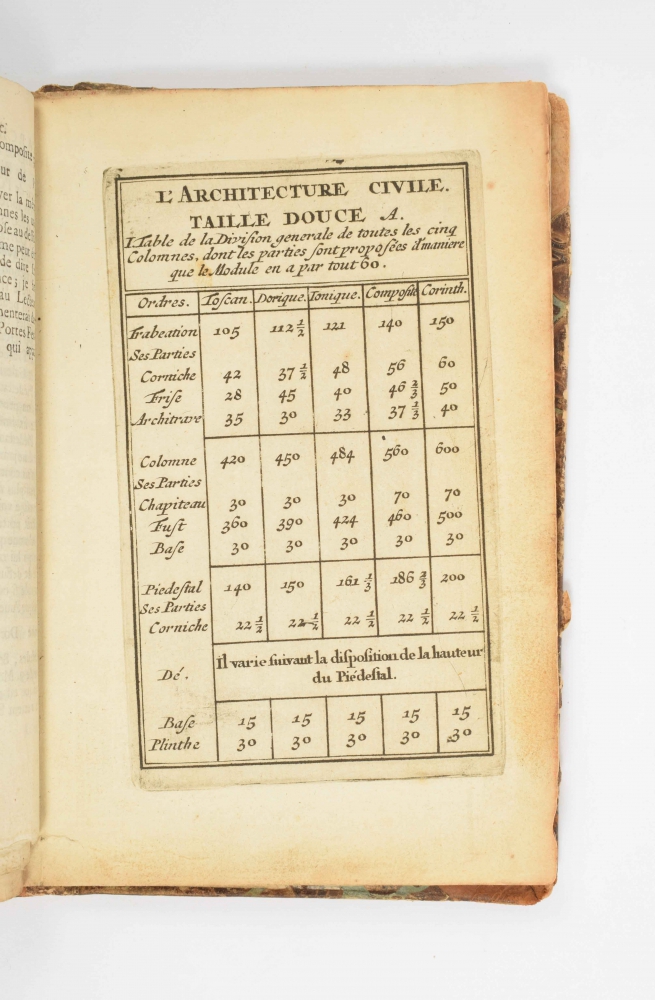 e.
omposite
ur de
ver la
nnes les
ole au de
me peut
de dire
nce ; je
au Lecteu
menterait
Portes Pe
qui app
L'ARCHITECTURE CIVILE.
TAILLE DOUCE A.
I. Table de la Division generale de toutes les cinq
Colomnes, dont les parties sont proposées d'maniere
que le Module en a par tout 60.
Ordres. Toscan. Dorique. Ionique. Composite Corinth.
Trabeation 105 112 1/2 121 140 150
Ses Parties
Corniche 42 37 1/2 48 56 60
Frise 28 45 40 46 2/3 50
Architrave 35 30 33 37 1/3 40
Colomne 420 450 484 560 600
Ses Parties
Chapiteau 30 30 30 70 70
Fust 360 390 424 460 500
Base 30 30 30 30 30
Piedestal 140 150 161 1/3 186 2/3 200
Ses Parties
Corniche 22 1/2 22 1/2 22 1/2 22 1/2 22 1/2
Dé. Il varie suivant la disposition de la hauteur
du Piédestal.
Base 15 15 15 15 15
Plinthe 30 30 30 30 30